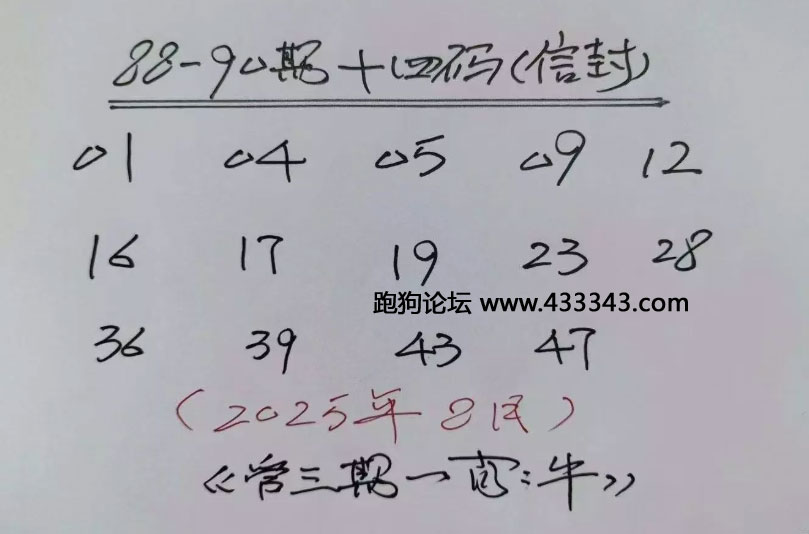 88-90期十四码(信封)
01 04 05 09 12
16 17 19 23 28
跑狗论坛 www.433343.com
36 39 43 47
(2025年8月)
《管三期一肖:牛》